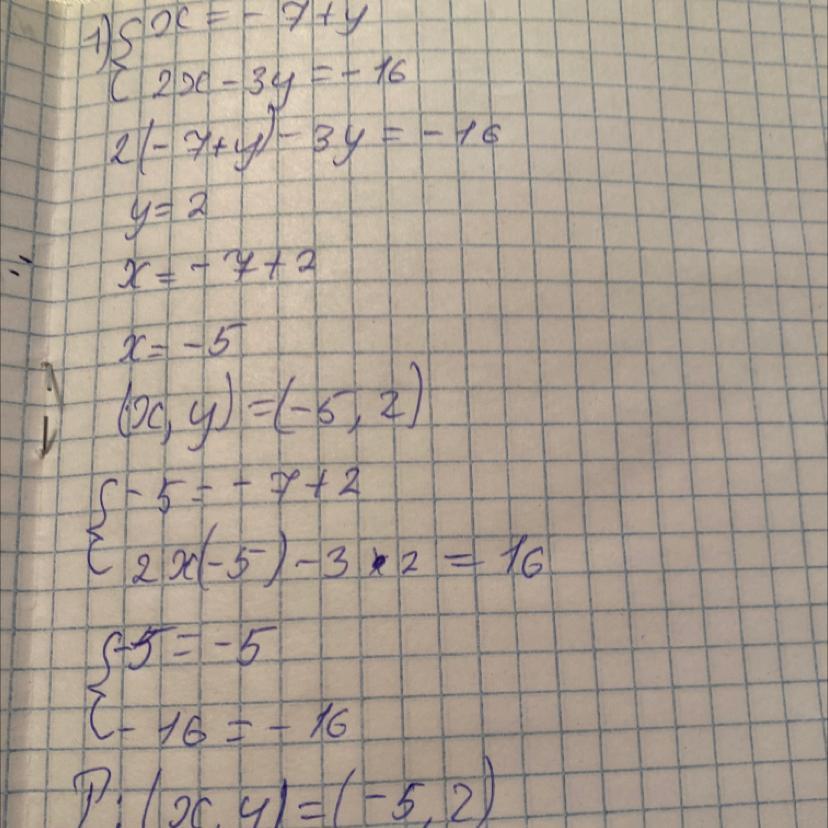 1) { x = - 7 + y
{ 2x - 3y = - 16
2(- 7 + y) - 3y = - 16
y = 2
x = - 7 + 2
x = - 5
(x, y) = (-5, 2)
{ - 5 = - 7 + 2
{ 2 x (-5) - 3 • 2 = 16
{ -5 = -5
{ - 16 = - 16
P: (x, y) = (-5, 2)